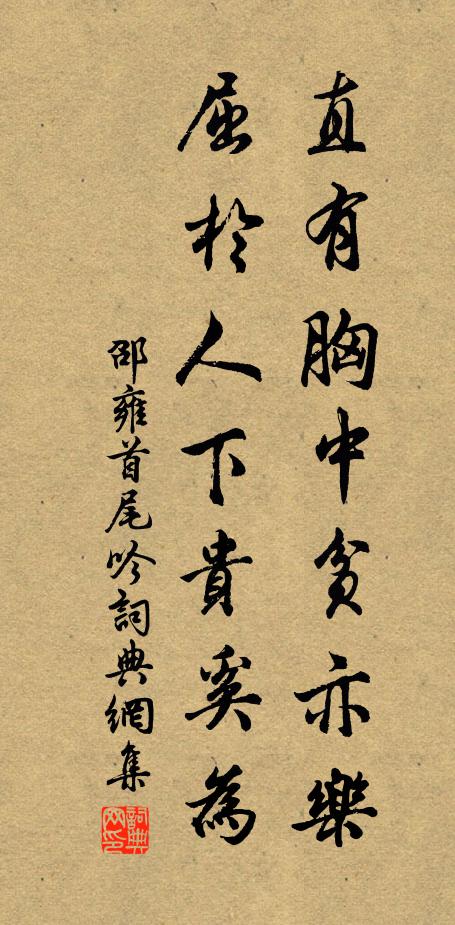 直有胸中貧亦樂
屈於人下貴奚為
邵雍首尾吟詞典網集
詞典網印